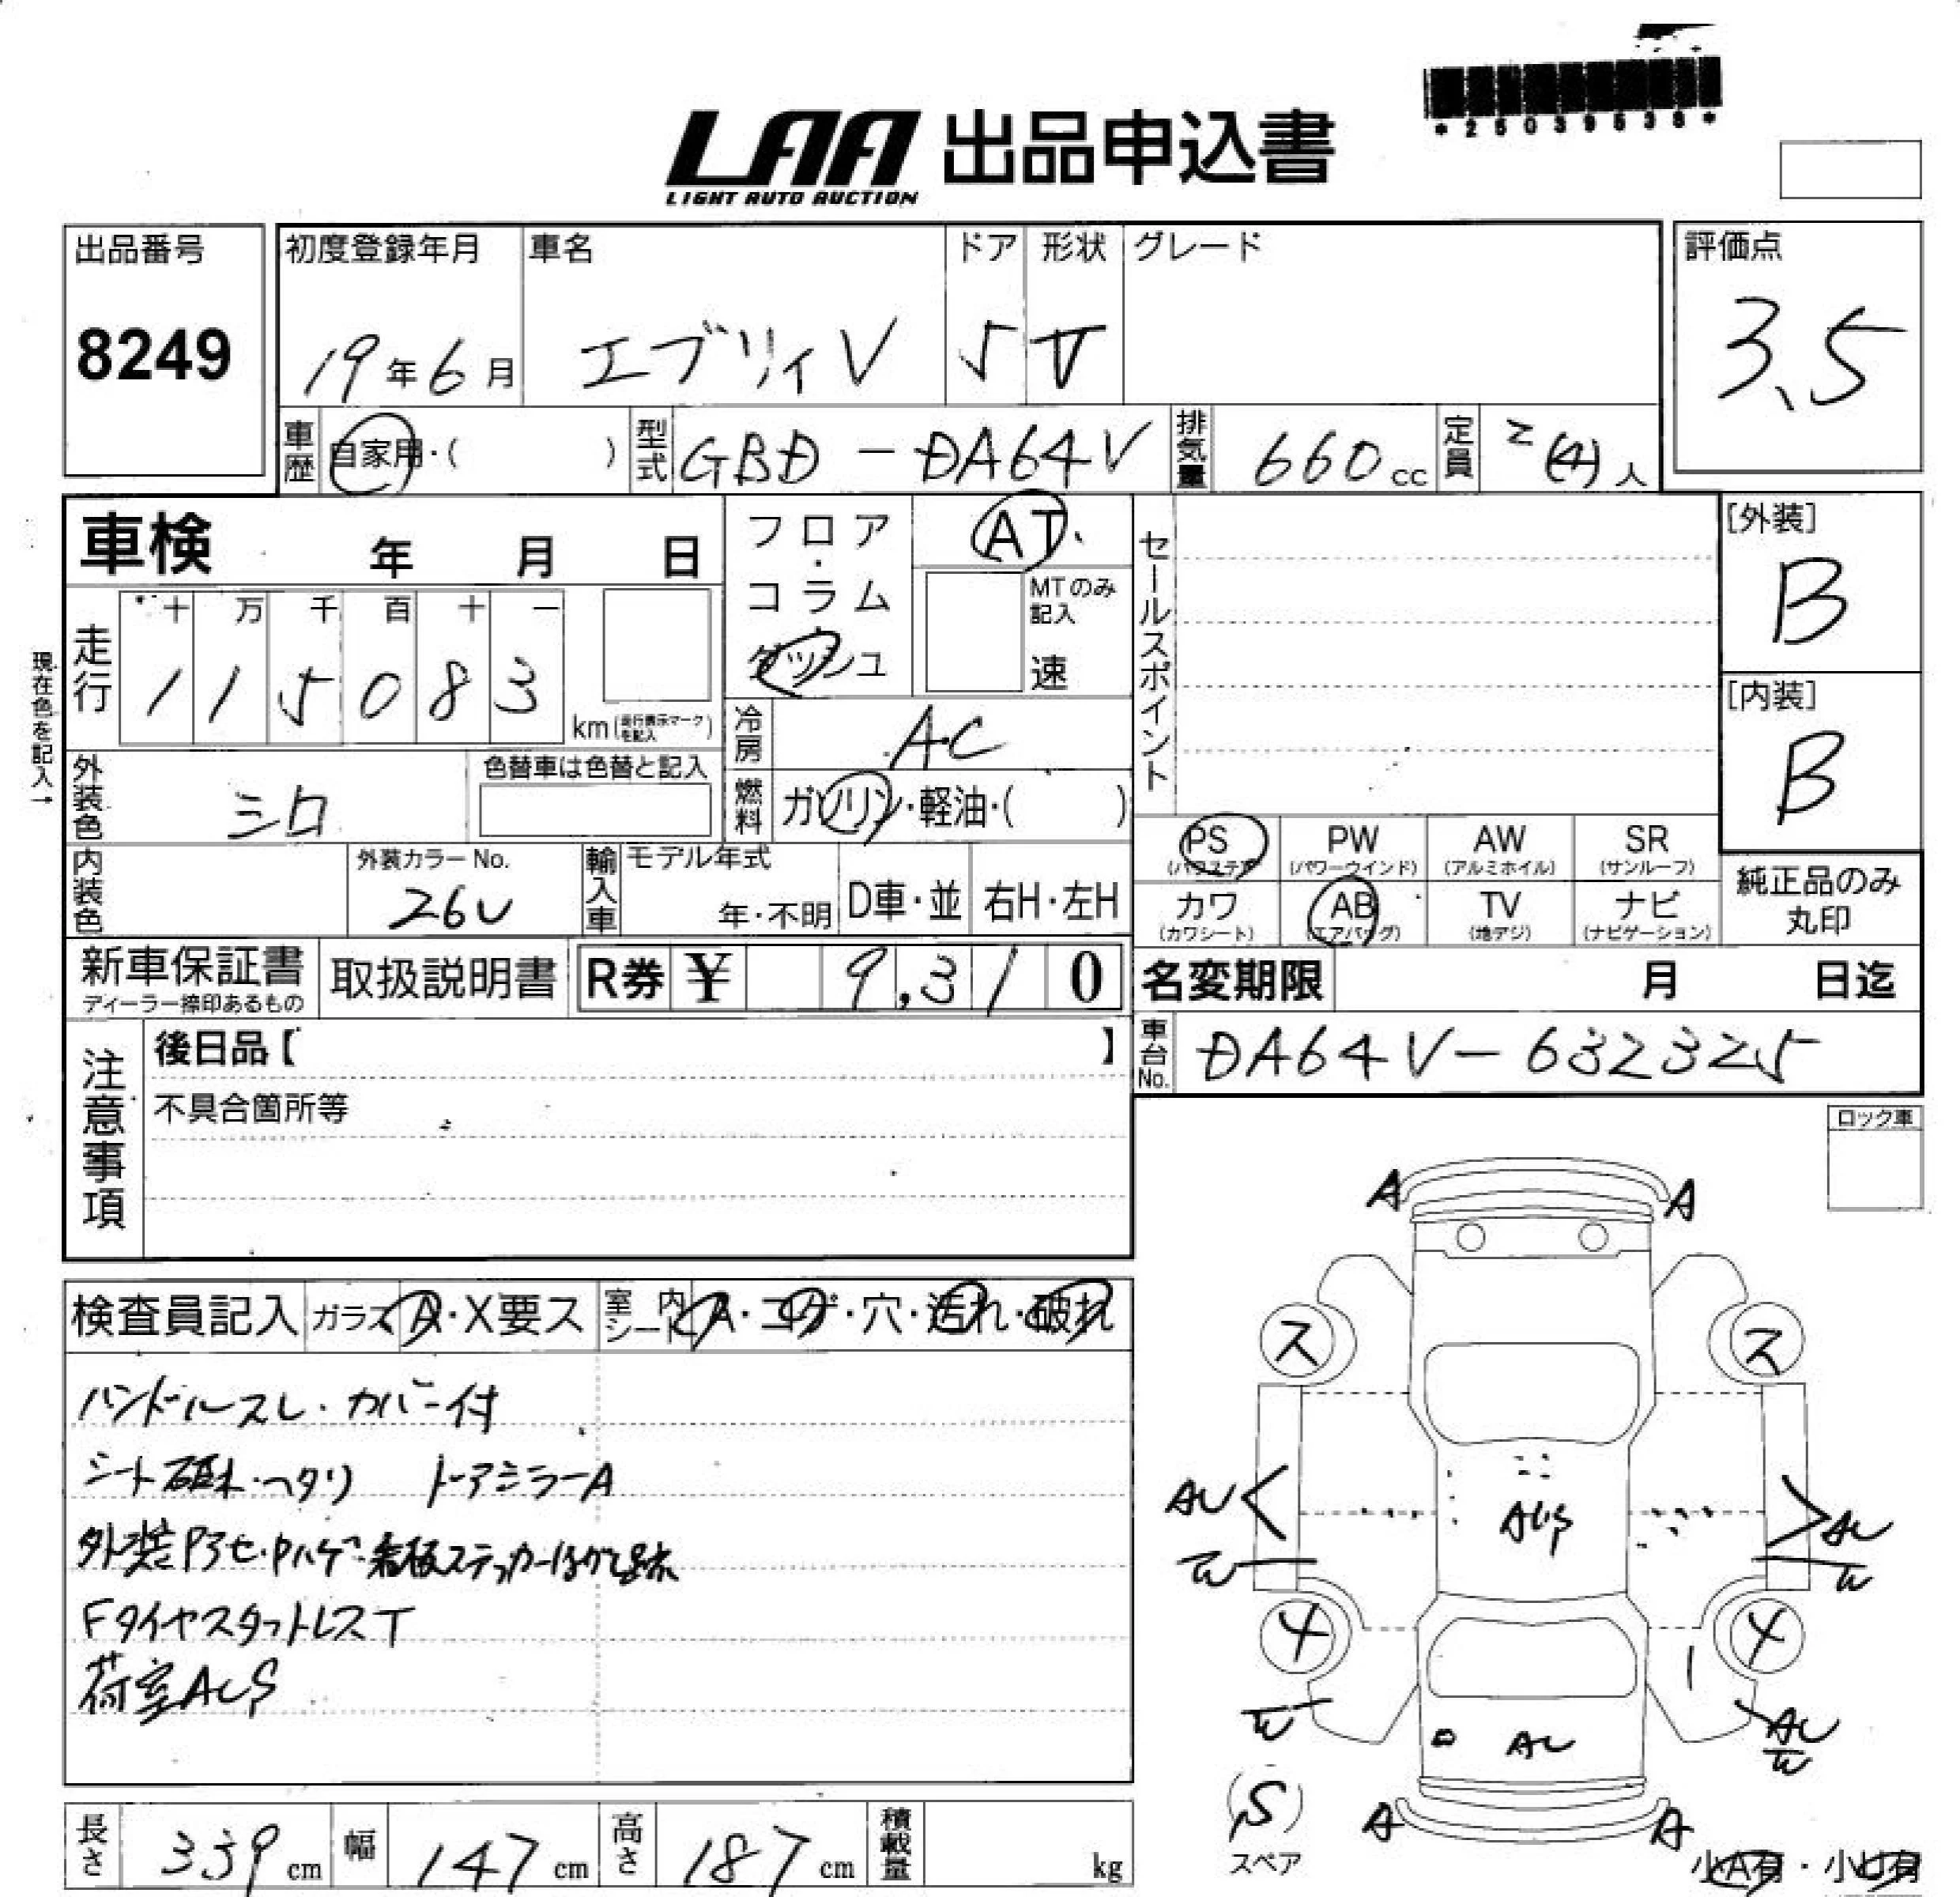 *25039538*
LAA 出品申込書
LIGHT AUTO AUCTION
出品番号
8249
初度登録年月
19年6月
車名
エブリィV
ドア
5
形状
V
グレード
評価点
3.5
車歴
自家用・( )
型式
GBD-DA64V
排気量
660cc
定員
2(4)人
車検 年 月 日
フロア・コラム・ダッシュ
AT
MTのみ記入
速
セールスポイント
[外装]
B
[内装]
B
現在色を記入→
走行
十 万 千 百 十 一
1 1 5 0 8 3
km(走行表示マークを記入)
冷房
AC
外装色
シロ
色替車は色替と記入
燃料
ガソリン・軽油・( )
内装色
外装カラーNo.
26U
輸入車
モデル年式
年・不明
D車・並
右H・左H
PS
(パワステ)
PW
(パワーウインド)
AW
(アルミホイル)
SR
(サンルーフ)
カワ
(カワシート)
AB
(エアバッグ)
TV
(地デジ)
ナビ
(ナビゲーション)
純正品のみ
丸印
新車保証書
ディーラー捺印あるもの
取扱説明書
R券 ¥ 9,310
名変期限 月 日迄
注意事項
後日品【 】
不具合箇所等
車台No.
DA64V-632325
ロック車
検査員記入
ガラス
A・X要ス
室内
シート
A・コゲ・穴・汚れ・破れ
ハンドルスレ・カバー付
シート破れ・ヘタリ ドアミラーA
外装Pアセ・Pハゲ・看板ステッカーはがし跡
FタイヤスタットレスT
荷室AUS
A A
ス ス
AU AU
AUS
W W
4 4
W AU
W
AU
(S)
スペア
A A
小A有・小U有
長さ
339cm
幅
147cm
高さ
187cm
積載量
kg